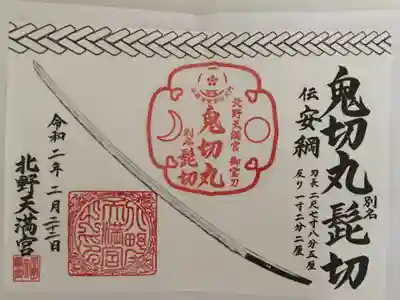 鬼切丸 別名 髭切
伝 安綱
刃長 二尺七寸八分五厘
反り 一寸二分二厘
北野天満宮 御宝刀
鬼切丸
別名 髭切
令和二年二月二十二日
北野天満宮